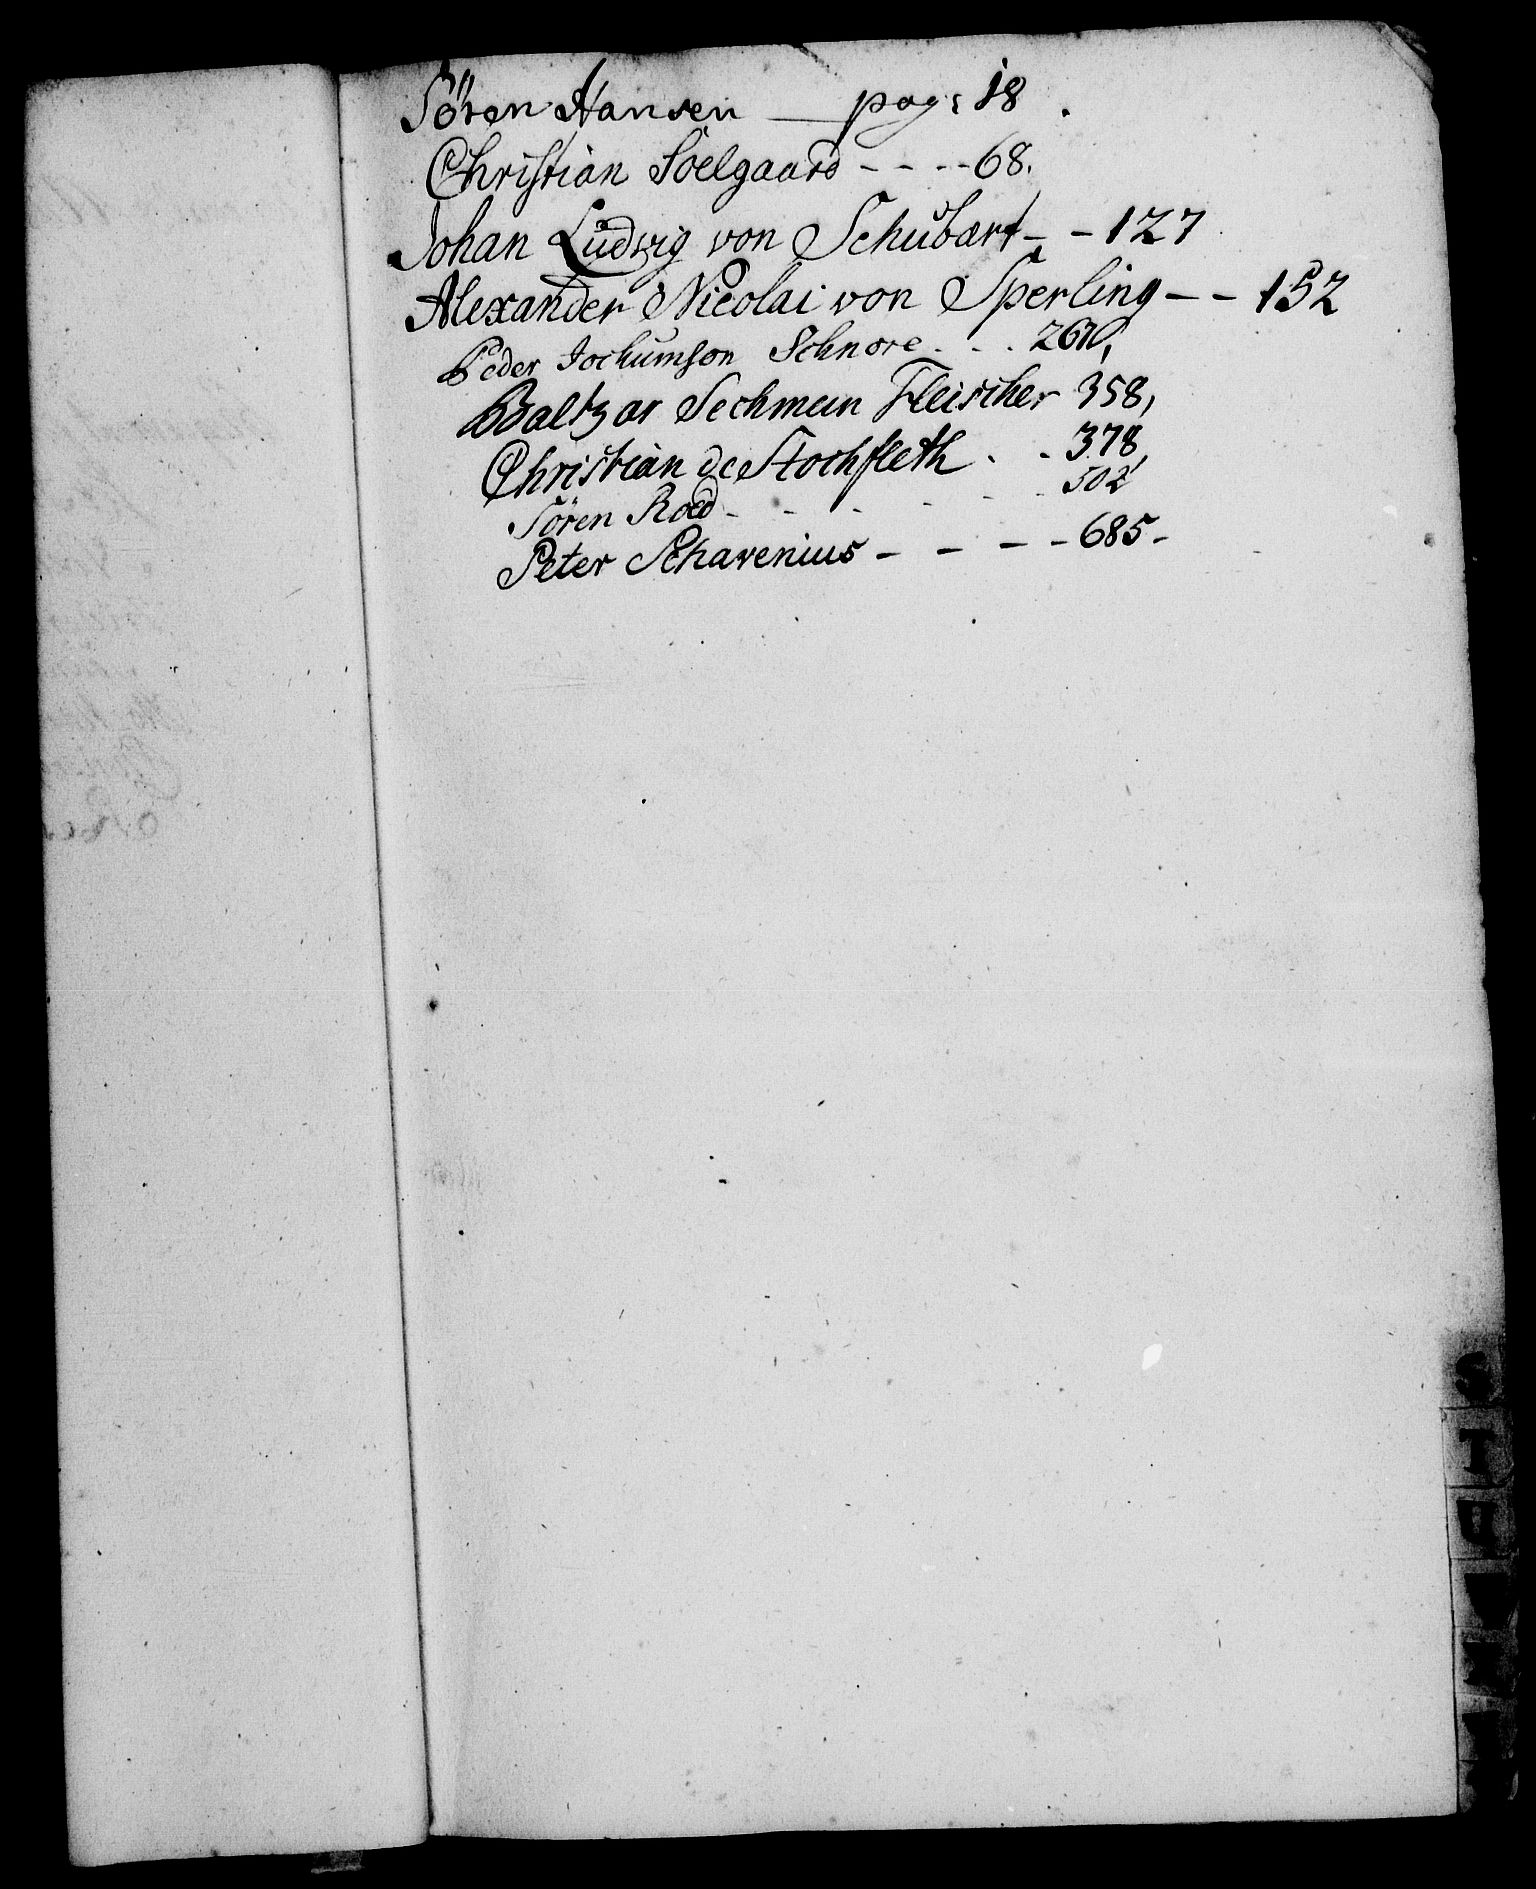 Sören Hansen — pag: 18.
Christian Soelgaard - - - - 68.
Johan Ludwig von Schubart - - 127
Alexander Nicolai von Sperling - - 152
Peder Jochumson Schnore . . . 267,
Baltzar Sechman Fleischer 358,
Christian de Stochfleth . . 378,
Sören Roed - - - - - - 502
Peter Schavenius - - - - 685 -
S
T
U
V